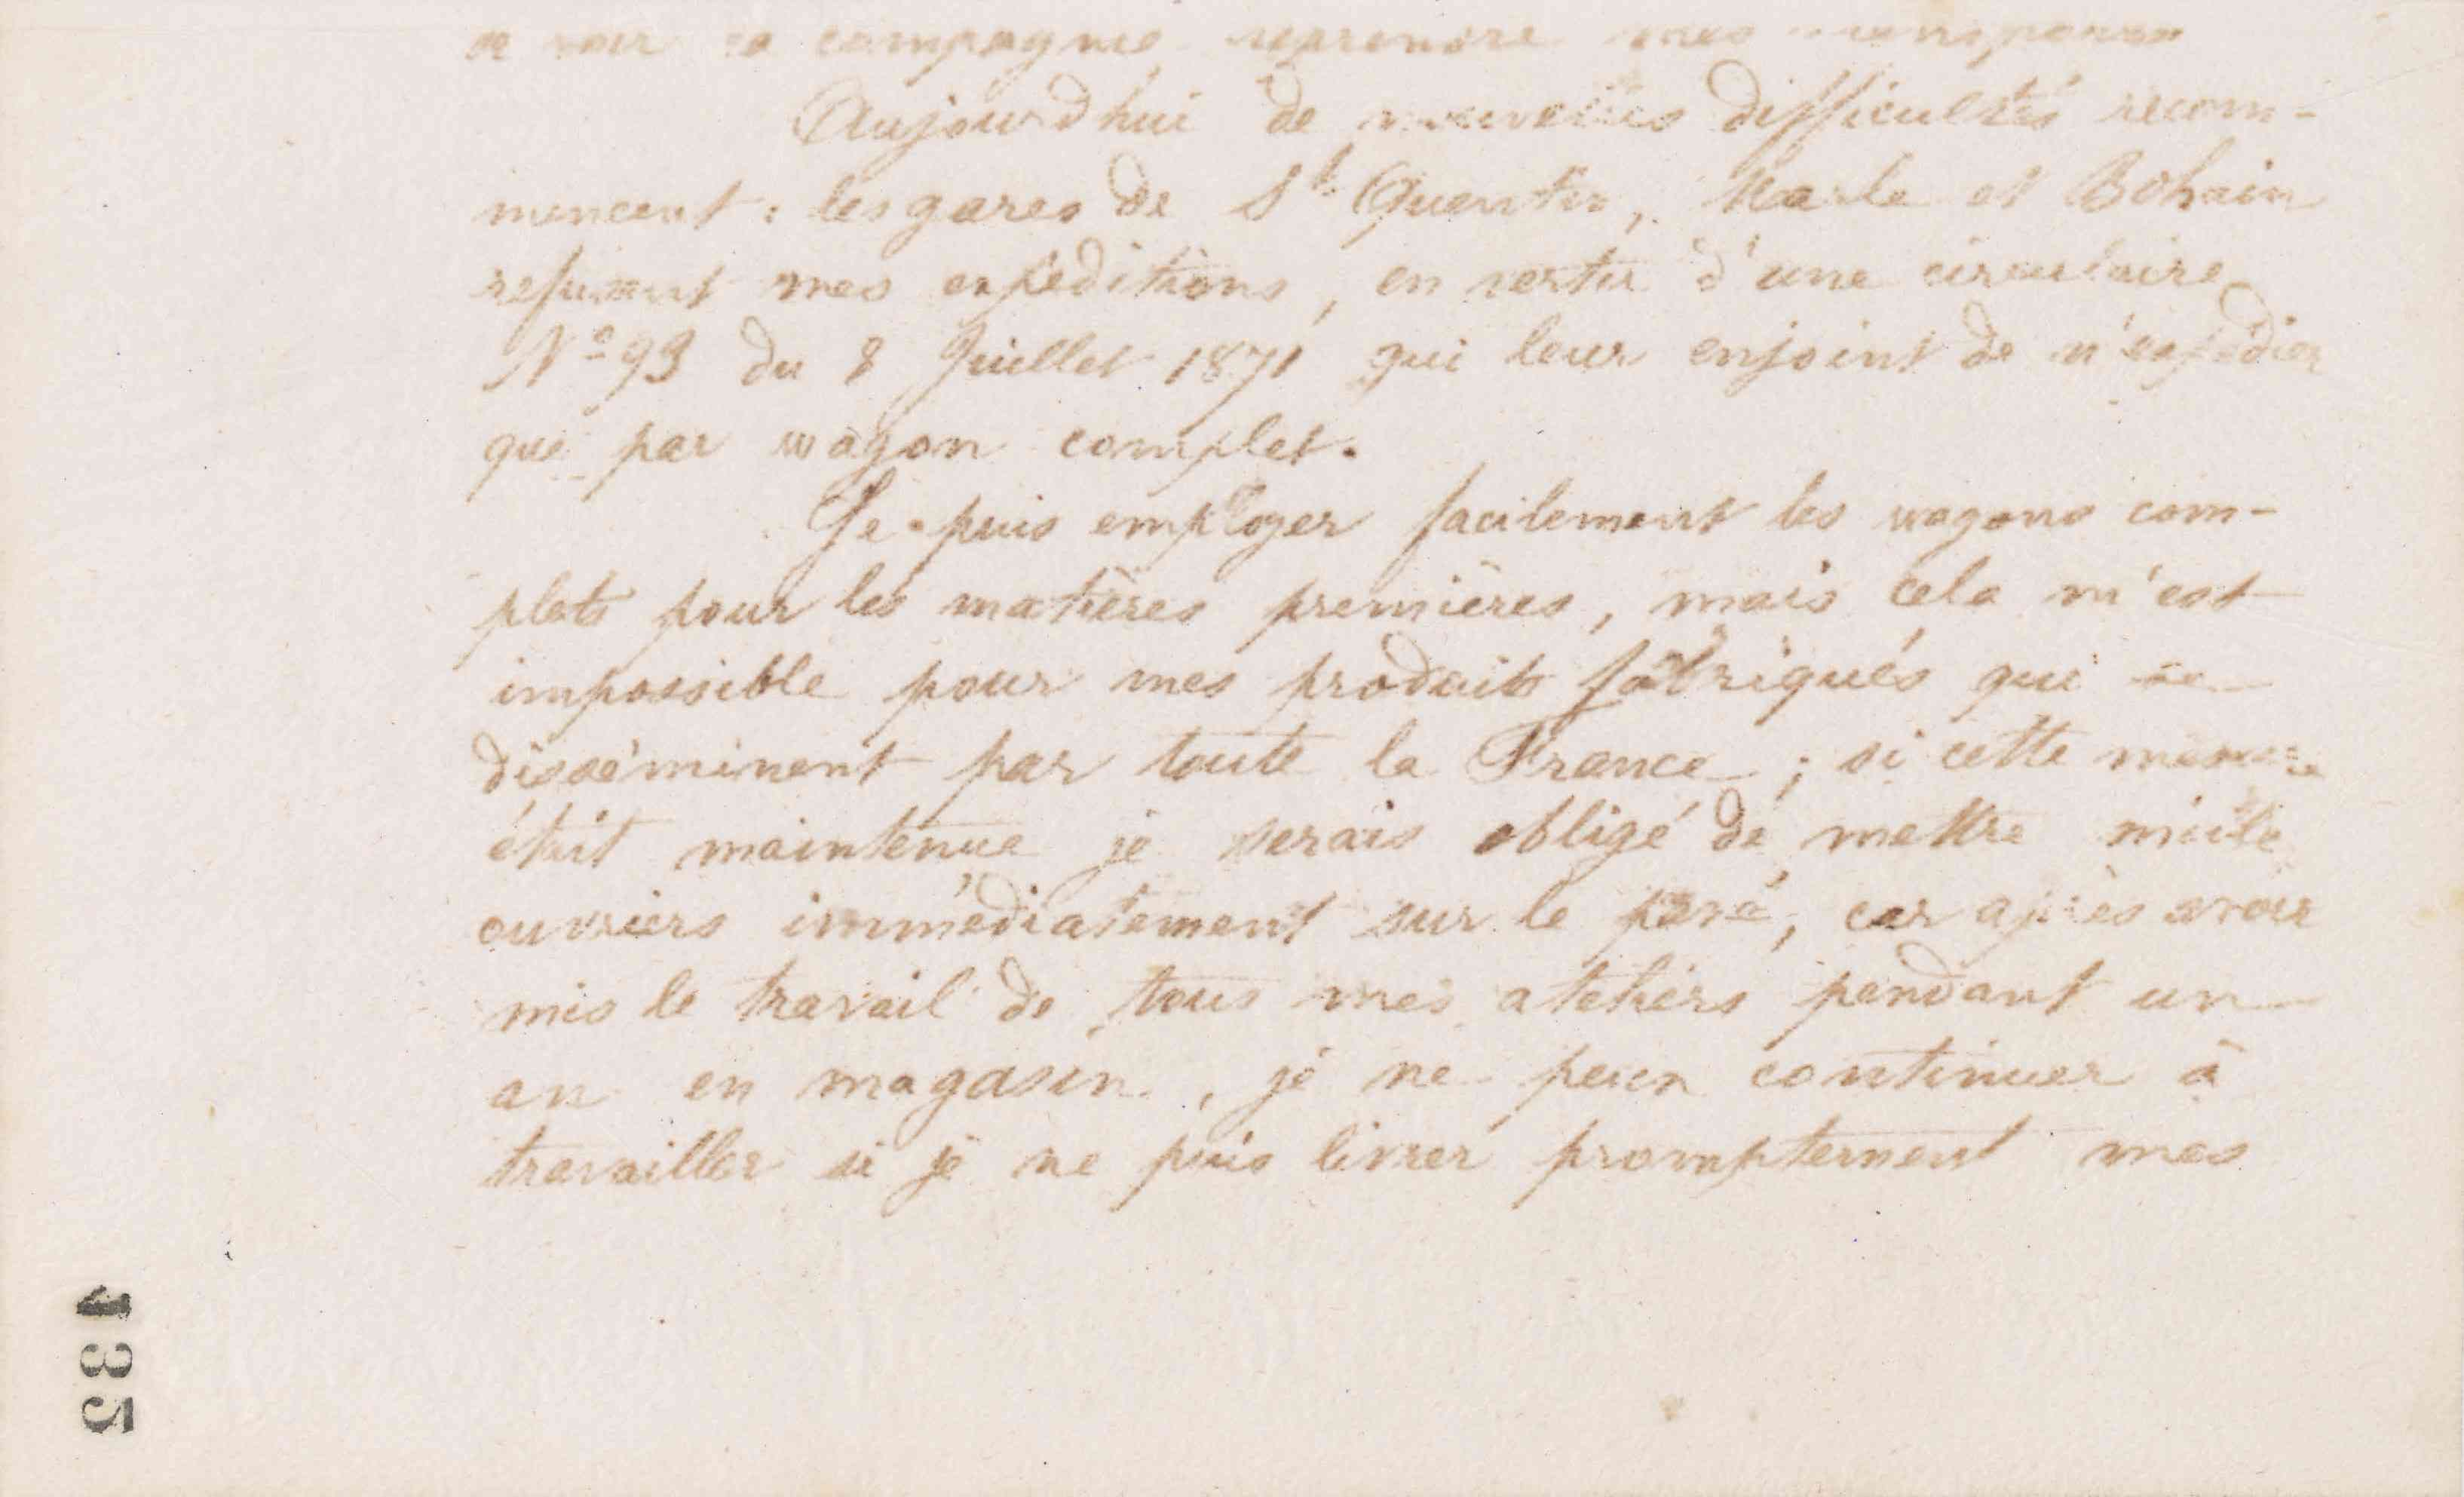 de voir la compagnie reprendre mes transports
Aujourd'hui de nouvelles difficultés recom-
mencent : les gares de St Quentin, Marle et Bohain
refusent mes expéditions, en vertu d'une circulaire
No 93 du 8 Juillet 1871 qui leur enjoint de n'expédier
que par wagon complet.
Je puis employer facilement les wagons com-
plets pour les matières premières, mais cela m'est
impossible pour mes produits fabriqués qui se
disséminent par toute la France ; si cette mesure
était maintenue je serais obligé de mettre mille
ouvriers immédiatement sur le pavé, car après avoir
mis le travail de tous mes ateliers pendant un
an en magasin, je ne peux continuer à
travailler si je ne puis livrer promptement mes
135